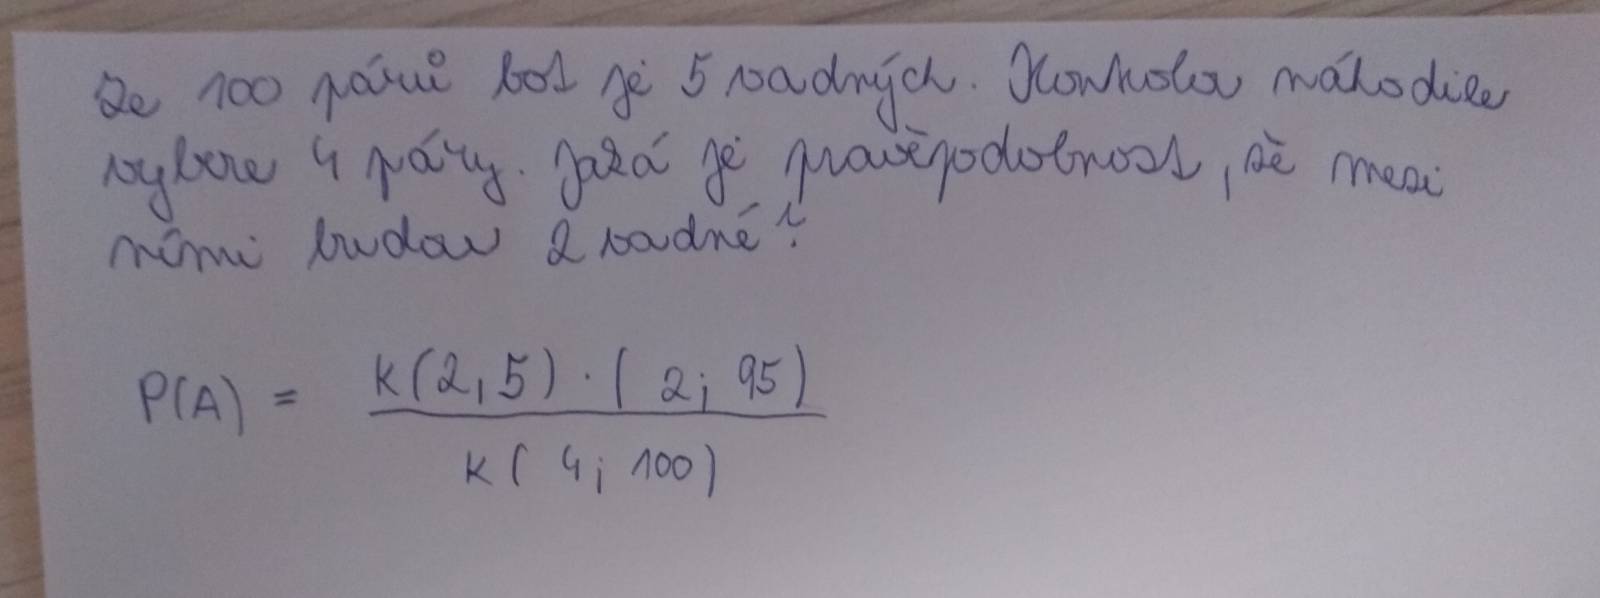 Ze 100 párů bot je 5 vadných. Kontrola náhodile
vybere 4 páry. Jaká je pravěpodobnost, že mezi
nimi budou 2 vadné?
P(A) = K(2,5) · ( 2; 95)
K( 4; 100)